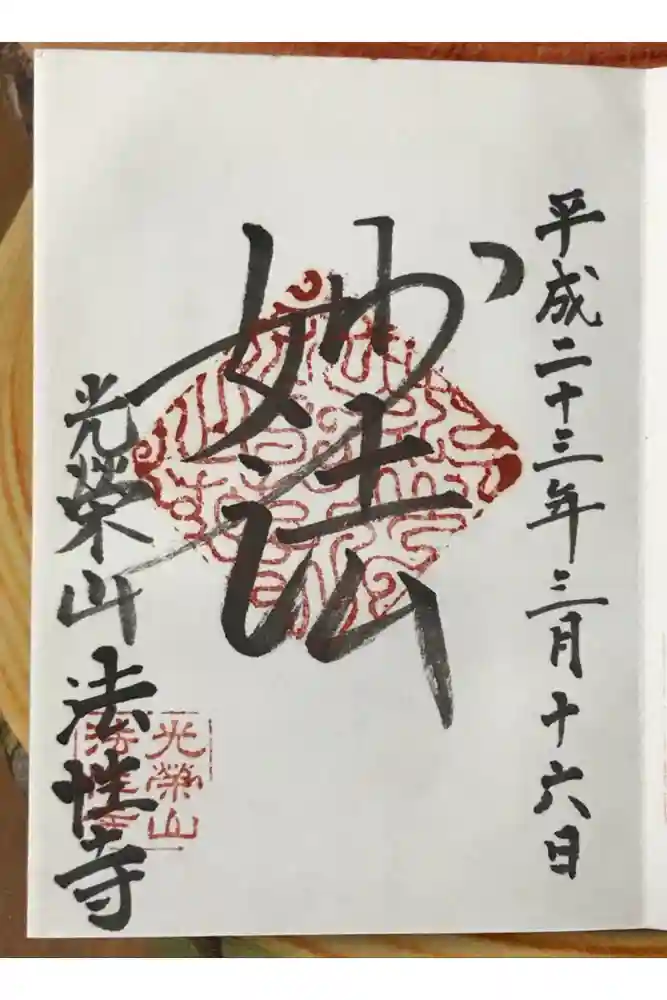 平成二十三年三月十六日
妙法
光榮山法性寺
光榮山
法性寺